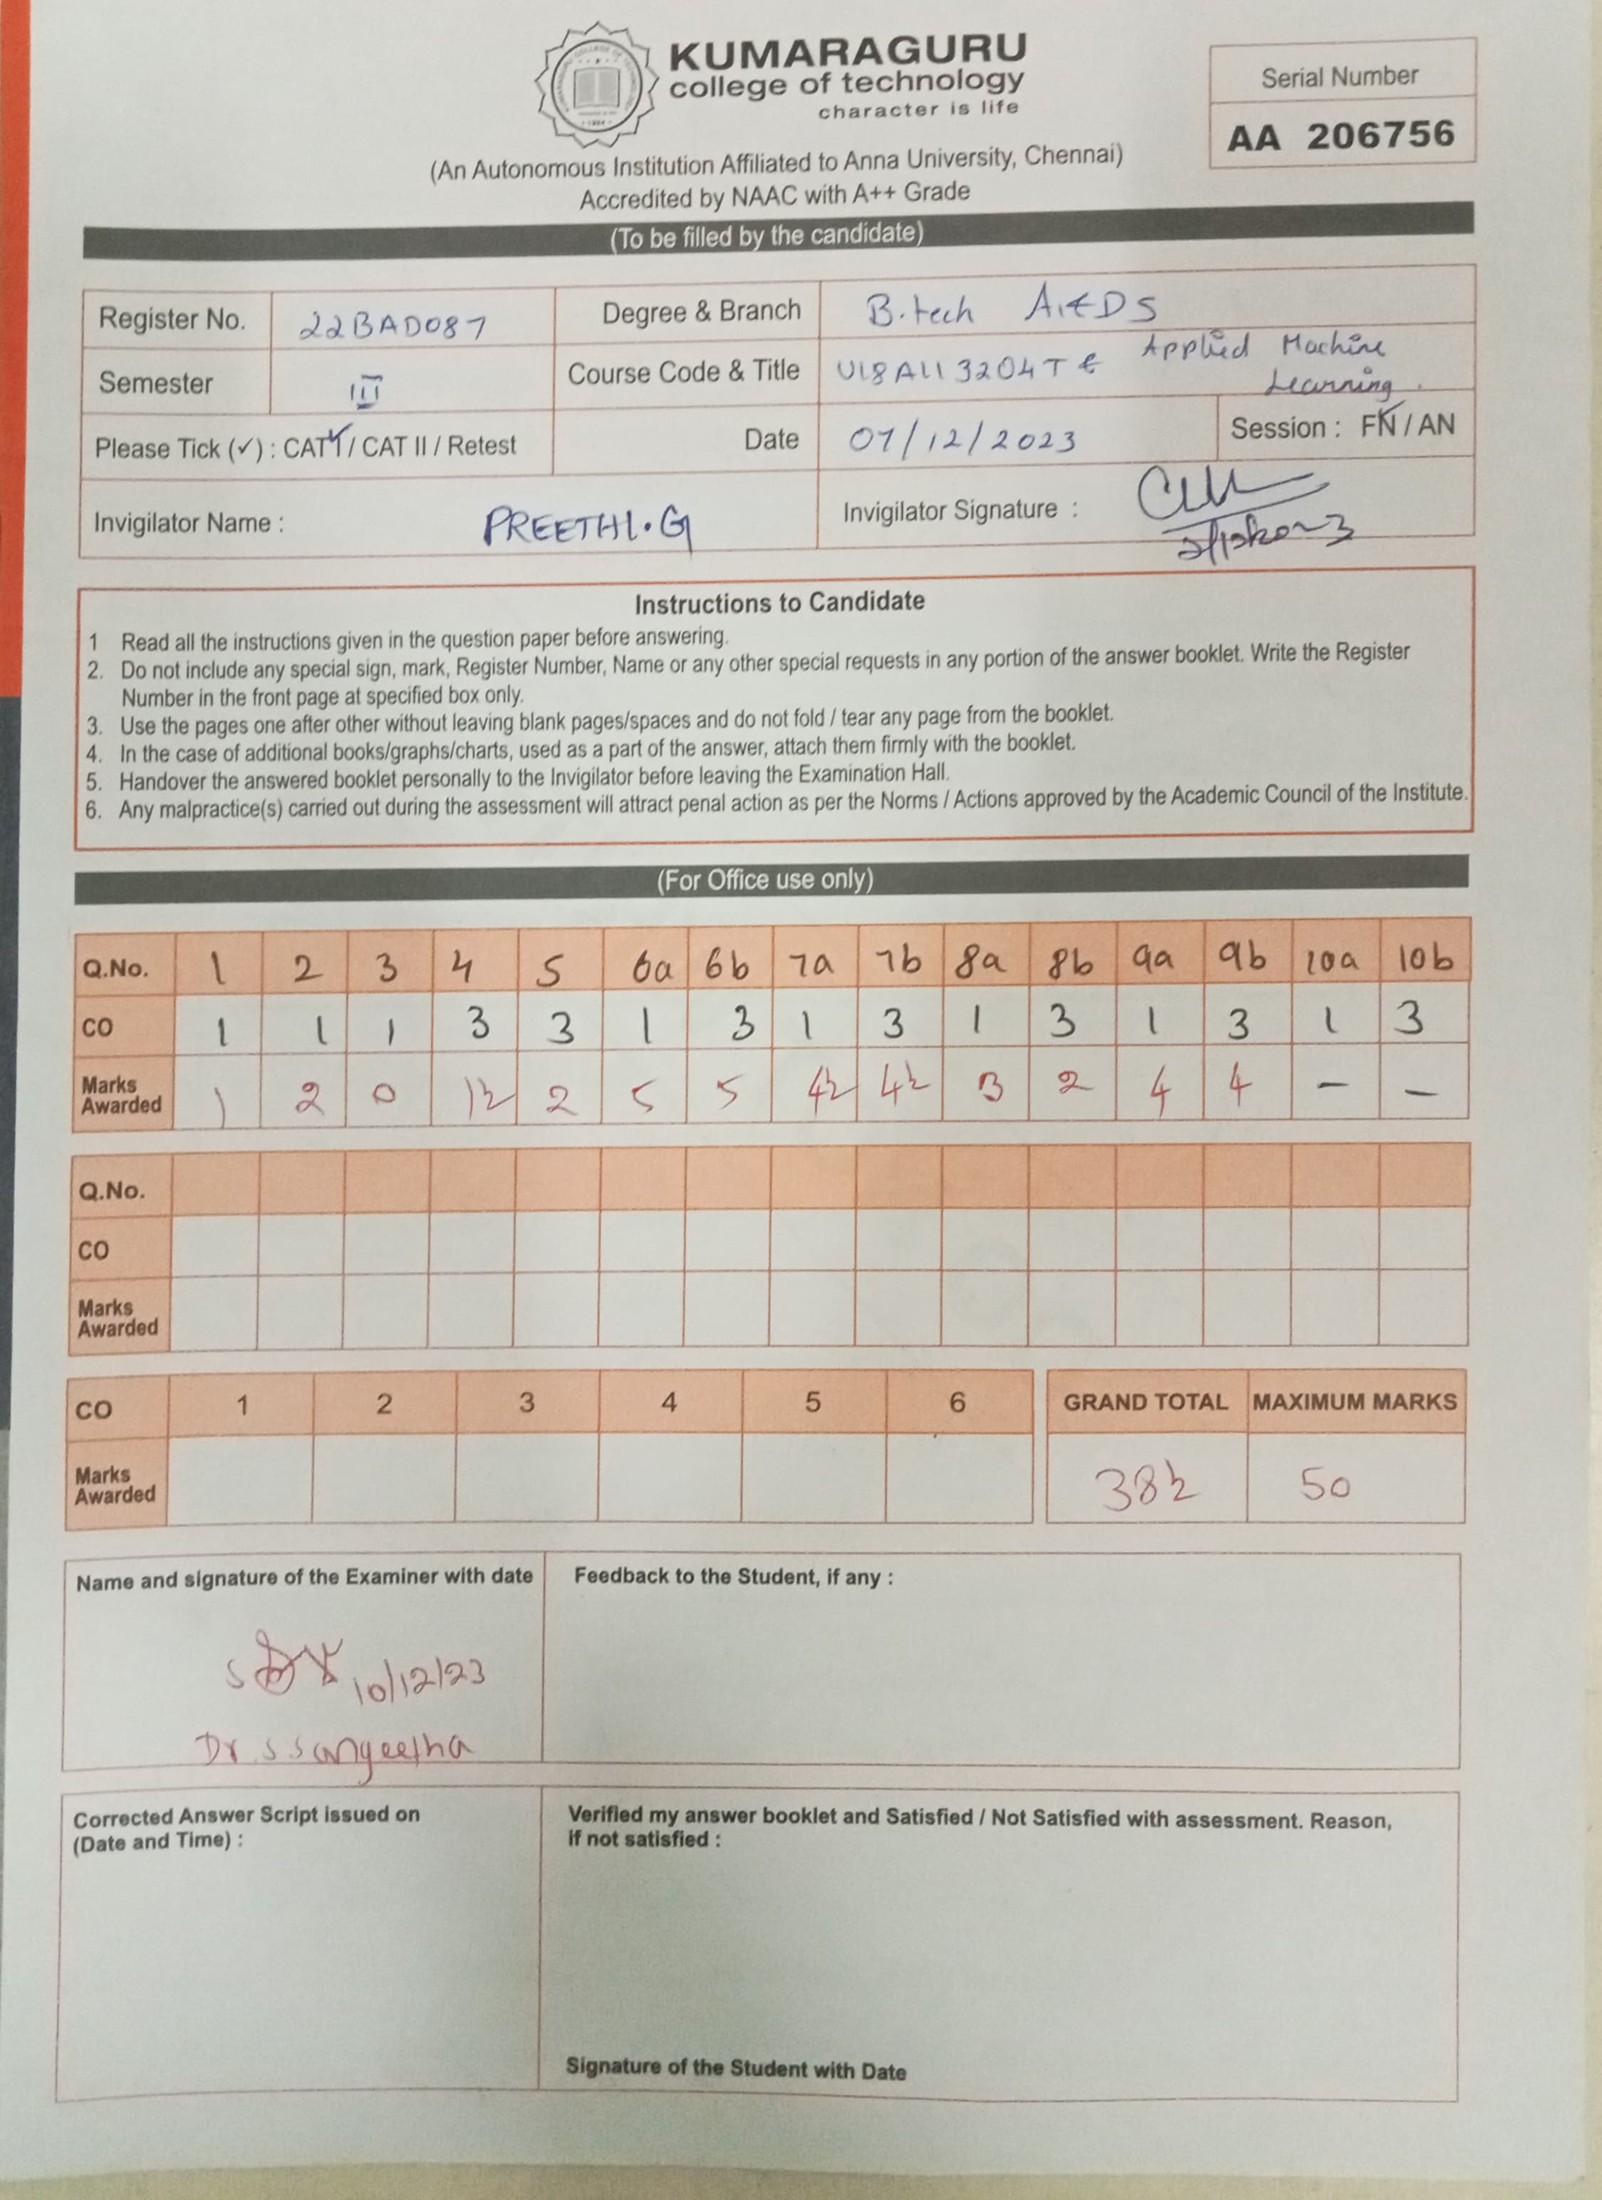 KUMARAGURU
college of technology
character is life
Serial Number
AA 206756
(An Autonomous Institution Affiliated to Anna University, Chennai)
Accredited by NAAC with A++ Grade
(To be filled by the candidate)
Register No. 22BAD087 Degree & Branch B.tech AI&DS
Semester III Course Code & Title U18AII3204T & Applied Machine
Learning.
Please Tick (✓) : CAT I / CAT II / Retest Date 07/12/2023 Session : FN / AN
Invigilator Name : PREETHI.G Invigilator Signature :
Instructions to Candidate
1 Read all the instructions given in the question paper before answering.
2. Do not include any special sign, mark, Register Number, Name or any other special requests in any portion of the answer booklet. Write the Register
Number in the front page at specified box only.
3. Use the pages one after other without leaving blank pages/spaces and do not fold / tear any page from the booklet.
4. In the case of additional books/graphs/charts, used as a part of the answer, attach them firmly with the booklet.
5. Handover the answered booklet personally to the Invigilator before leaving the Examination Hall.
6. Any malpractice(s) carried out during the assessment will attract penal action as per the Norms / Actions approved by the Academic Council of the Institute.
(For Office use only)
Q.No. 1 2 3 4 5 6a 6b 7a 7b 8a 8b 9a 9b 10a 10b
CO 1 1 1 3 3 1 3 1 3 1 3 1 3 1 3
Marks Awarded 1 2 0 1½ 2 5 5 4½ 4½ 3 2 4 4 - -
Q.No.
CO
Marks Awarded
CO 1 2 3 4 5 6 GRAND TOTAL MAXIMUM MARKS
Marks Awarded 38½ 50
Name and signature of the Examiner with date Feedback to the Student, if any :
10/12/23
Dr.S Sangeetha
Corrected Answer Script issued on
(Date and Time) :
Verified my answer booklet and Satisfied / Not Satisfied with assessment. Reason,
if not satisfied :
Signature of the Student with Date